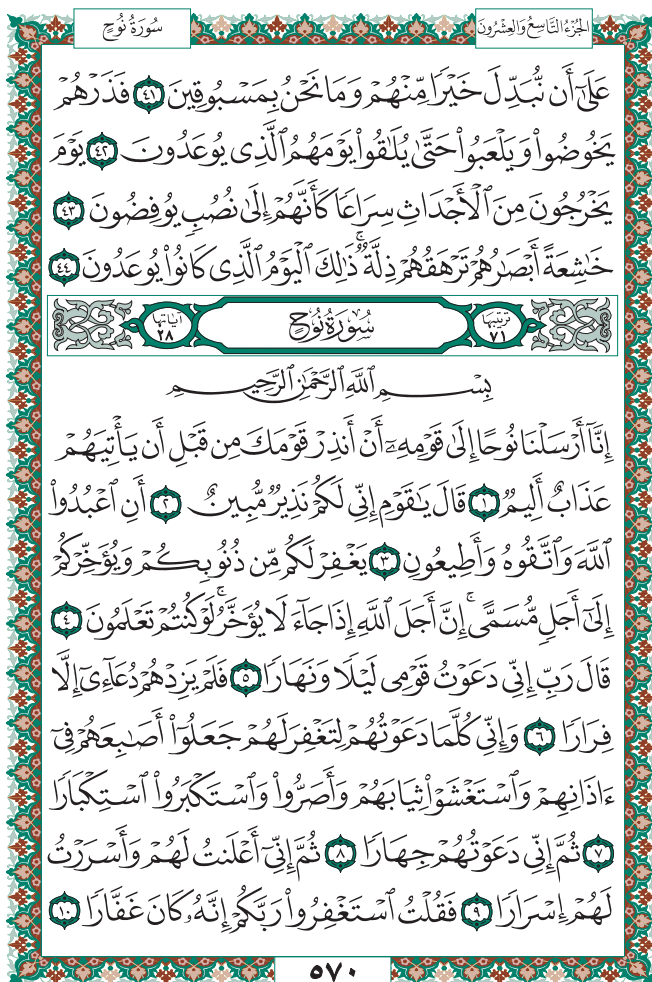 الجُزْءُ التَّاسِعُ وَالعِشْرُونَ
سُورَةُ نُوحٍ
عَلَىٰٓ أَن نُّبَدِّلَ خَيْرٗا مِّنْهُمْ وَمَا نَحْنُ بِمَسْبُوقِينَ ٤١ فَذَرْهُمْ
يَخُوضُواْ وَيَلْعَبُواْ حَتَّىٰ يُلَٰقُواْ يَوْمَهُمُ ٱلَّذِي يُوعَدُونَ ٤٢ يَوْمَ
يَخْرُجُونَ مِنَ ٱلْأَجْدَاثِ سِرَاعٗا كَأَنَّهُمْ إِلَىٰ نُصُبٖ يُوفِضُونَ ٤٣
خَٰشِعَةً أَبْصَٰرُهُمْ تَرْهَقُهُمْ ذِلَّةٞۚ ذَٰلِكَ ٱلْيَوْمُ ٱلَّذِي كَانُواْ يُوعَدُونَ ٤٤
ترتيبها ٧١ سُورَةُ نُوحٍ آياتها ٢٨
بِسْمِ ٱللَّهِ ٱلرَّحْمَٰنِ ٱلرَّحِيمِ
إِنَّآ أَرْسَلْنَا نُوحًا إِلَىٰ قَوْمِهِۦٓ أَنْ أَنذِرْ قَوْمَكَ مِن قَبْلِ أَن يَأْتِيَهُمْ
عَذَابٌ أَلِيمٞ ١ قَالَ يَٰقَوْمِ إِنِّي لَكُمْ نَذِيرٞ مُّبِينٌ ٢ أَنِ ٱعْبُدُواْ
ٱللَّهَ وَٱتَّقُوهُ وَأَطِيعُونِ ٣ يَغْفِرْ لَكُم مِّن ذُنُوبِكُمْ وَيُؤَخِّرْكُمْ
إِلَىٰٓ أَجَلٖ مُّسَمًّىۚ إِنَّ أَجَلَ ٱللَّهِ إِذَا جَآءَ لَا يُؤَخَّرُۚ لَوْ كُنتُمْ تَعْلَمُونَ ٤
قَالَ رَبِّ إِنِّي دَعَوْتُ قَوْمِي لَيْلٗا وَنَهَارٗا ٥ فَلَمْ يَزِدْهُمْ دُعَآءِيٓ إِلَّا
فِرَارٗا ٦ وَإِنِّي كُلَّمَا دَعَوْتُهُمْ لِتَغْفِرَ لَهُمْ جَعَلُوٓاْ أَصَٰبِعَهُمْ فِيٓ
ءَاذَانِهِمْ وَٱسْتَغْشَوْاْ ثِيَابَهُمْ وَأَصَرُّواْ وَٱسْتَكْبَرُواْ ٱسْتِكْبَارٗا
٧ ثُمَّ إِنِّي دَعَوْتُهُمْ جِهَارٗا ٨ ثُمَّ إِنِّيٓ أَعْلَنتُ لَهُمْ وَأَسْرَرْتُ
لَهُمْ إِسْرَارٗا ٩ فَقُلْتُ ٱسْتَغْفِرُواْ رَبَّكُمْ إِنَّهُۥ كَانَ غَفَّارٗا ١٠
٥٧٠